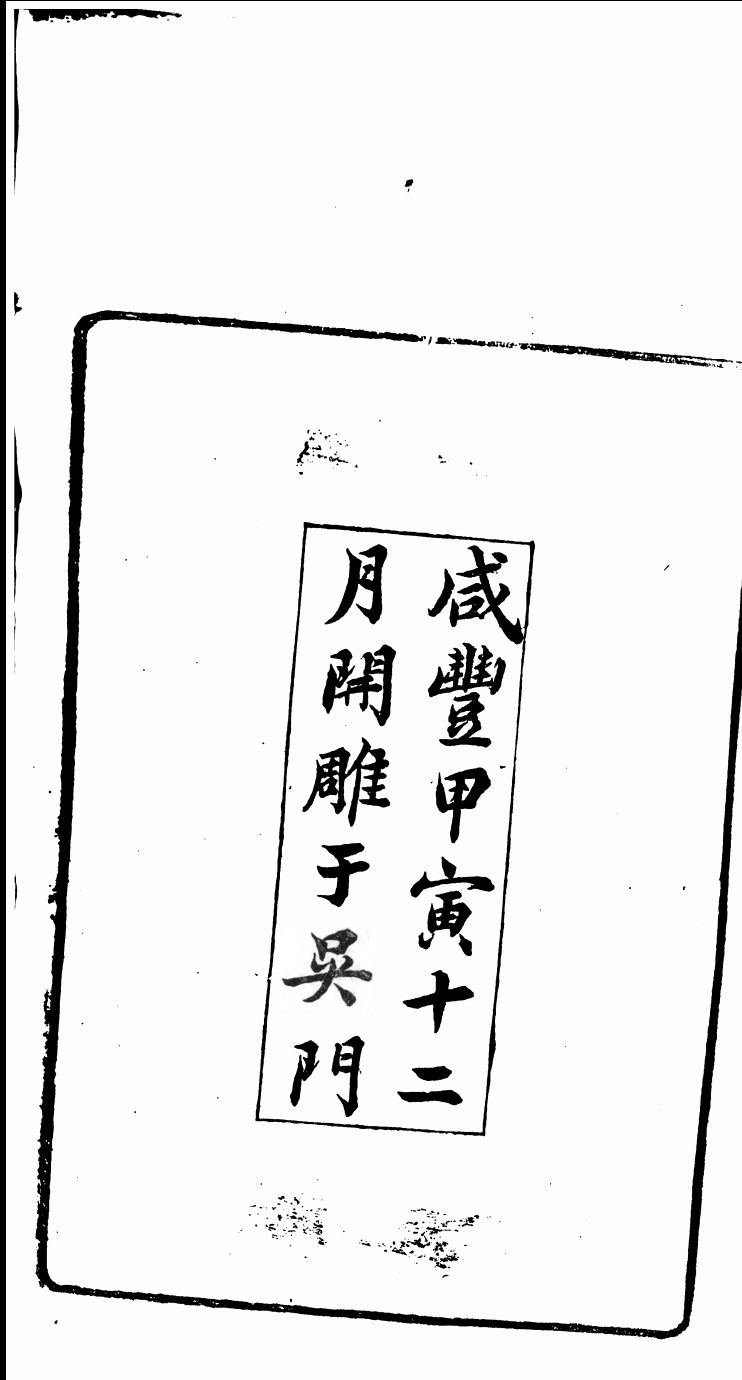 咸豐甲寅十二
月開雕于吳門